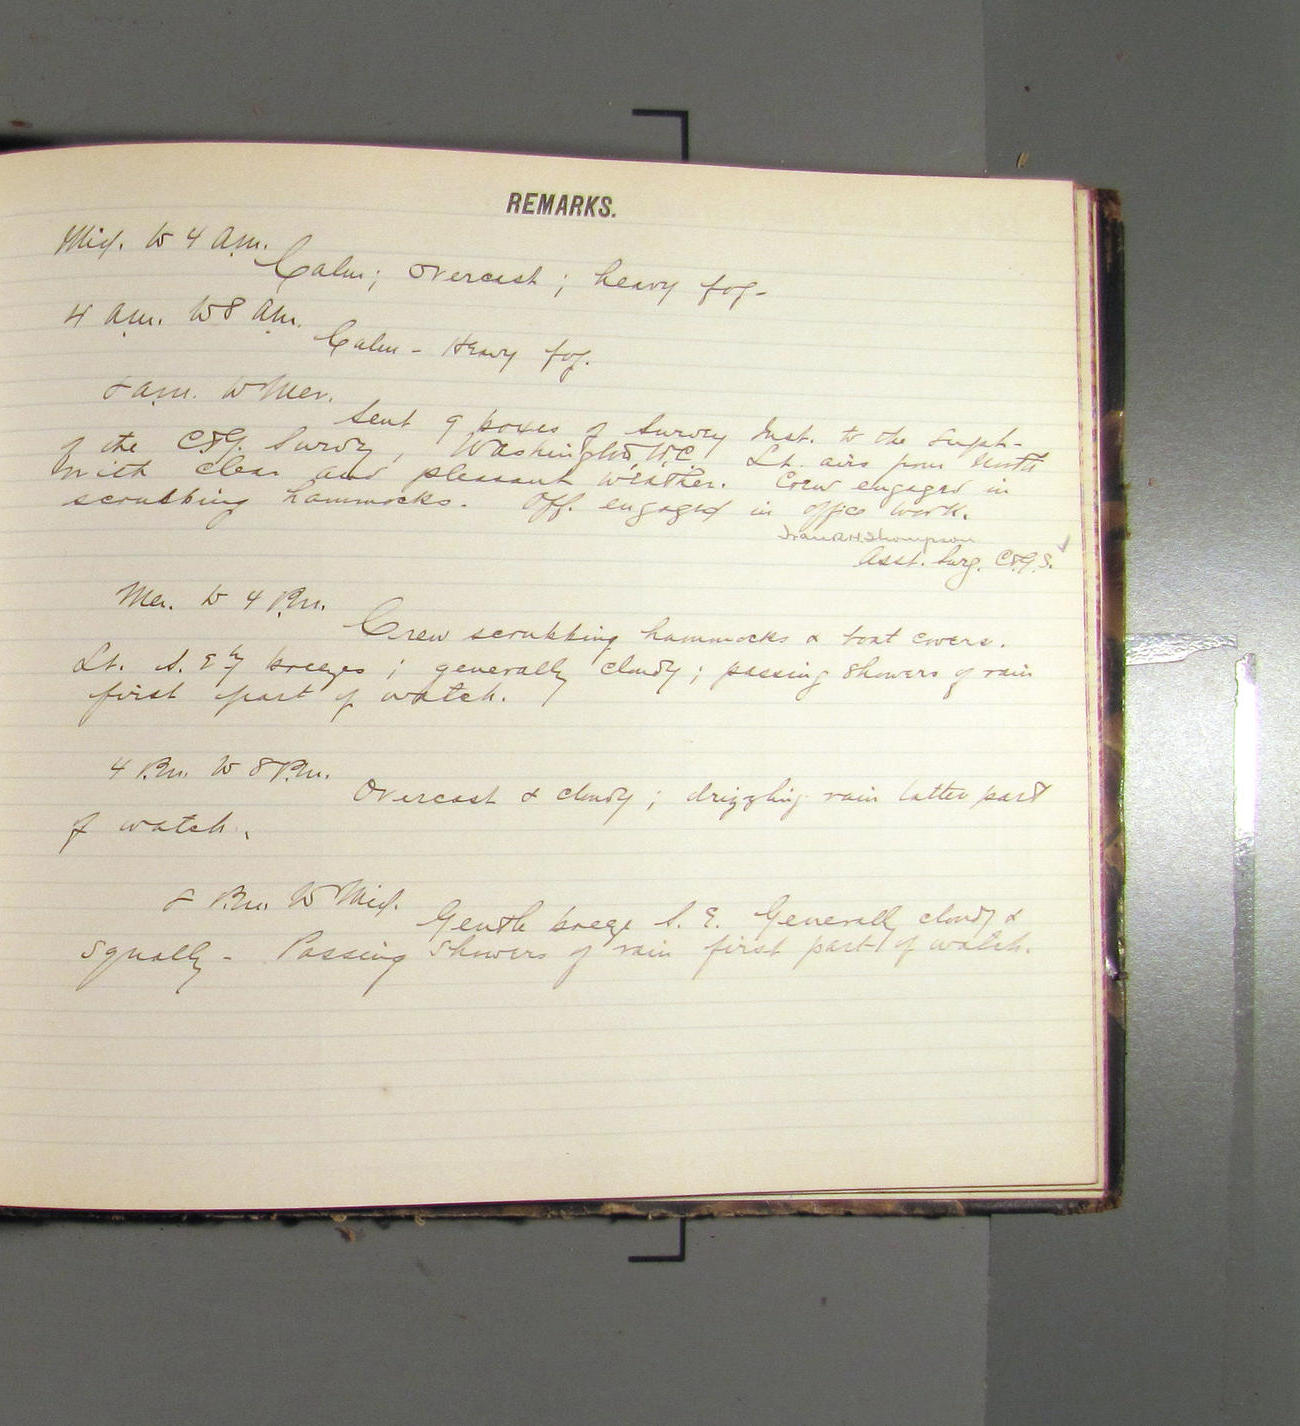 REMARKS.
Mid. to 4 a.m.
Calm; overcast; heavy fog-
4 a.m. to 8 a.m.
Calm - Heavy fog.
8 a.m. to Mer.
Sent 9 boxes of Survey Inst. to the Supt.
of the C&G. Survey, Washington, D.C. Lt. airs from North
with clear and pleasant weather. Crew engaged in
scrubbing hammocks. Off. engaged in office work.
Frank H. Thompson
Asst. Surg. C&G.S.
Mer. to 4 P.m.
Crew scrubbing hammocks & boat covers.
Lt. S. E'ly breezes; generally cloudy; passing showers of rain
first part of watch.
4 P.m. to 8 P.m.
Overcast & cloudy; drizzling rain latter part
of watch.
8 P.m. to Mid.
Gentle breeze S. E. Generally cloudy &
squally - Passing showers of rain first part of watch.